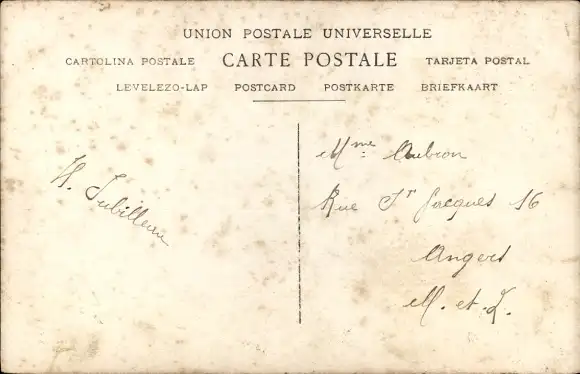 UNION POSTALE UNIVERSELLE
CARTOLINA POSTALE CARTE POSTALE TARJETA POSTAL
LEVELEZO-LAP POSTCARD POSTKARTE BRIEFKAART
Mme Aubron
Rue St Jacques 16
Angers
M. et. L.
H.